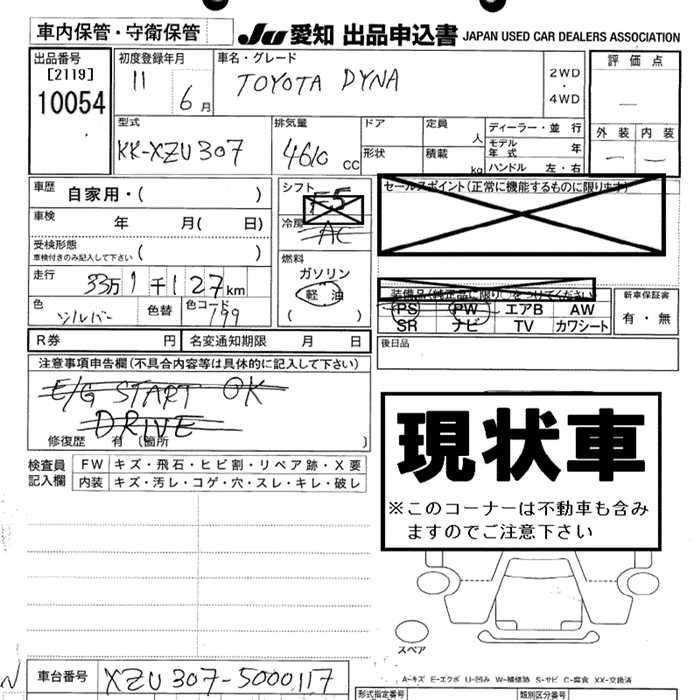 車内保管・守衛保管 JU 愛知 出品申込書 JAPAN USED CAR DEALERS ASSOCIATION
出品番号 初度登録年月 車名・グレード 評価点
[2119] 11 TOYOTA DYNA 2WD
10054 6月 ・
4WD
—
型式 排気量 ドア 定員 ディーラー・並行 外装 内装
人 モデル年式
KK-XZU307 4610 cc 形状 積載 kg ハンドル 左・右 — —
車歴 自家用・( ) シフト F5 セールスポイント(正常に機能するものに限ります)
車検 年 月( 日) 冷房 AC
受検形態
車検付きのみ記入して下さい ( ) 燃料
ガソリン
走行 33万1千127km 軽油 装備品(純正品に限り○をつけてください) 新車保証書
色 シルバー 色替 色コード 799 ( ) PS PW エアB AW 有・無
SR ナビ TV カワシート
R券 円 名変通知期限 月 日 後日品
注意事項申告欄(不具合内容等は具体的に記入して下さい)
E/G START OK
DRIVE
修復歴 有 (箇所 )
現状車
※このコーナーは不動車も含み
ますのでご注意下さい
検査員 FW キズ・飛石・ヒビ割・リペア跡・X要
記入欄 内装 キズ・汚レ・コゲ・穴・スレ・キレ・破レ
スペア
A=キズ E=エクボ U=凹み W=補修跡 S=サビ C=腐食 XX=交換済
N 車台番号 XZU307-5000117
形式指定番号 類別区分番号